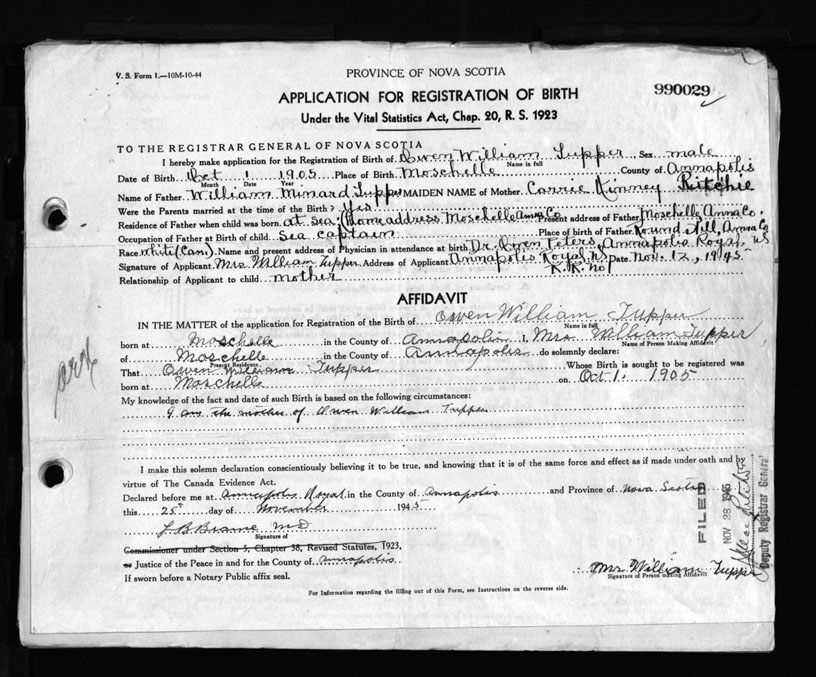 V. S. Form 1.—10M-10-44
PROVINCE OF NOVA SCOTIA
990029
APPLICATION FOR REGISTRATION OF BIRTH
Under the Vital Statistics Act, Chap. 20, R. S. 1923
TO THE REGISTRAR GENERAL OF NOVA SCOTIA
I hereby make application for the Registration of Birth of Owen William Tupper, Sex male
Name in full
Date of Birth Oct 1 1905 Place of Birth Moschelle County of Annapolis
Month Date Year
Name of Father William Minard Tupper MAIDEN NAME of Mother Carrie Kinney Ritchie
Were the Parents married at the time of the Birth? Yes
Residence of Father when child was born at sea: (Home address Moschelle Anna Co Present address of Father Moschelle Anna Co.
Occupation of Father at Birth of child. Sea captain Place of birth of Father Round Hill, Anna Co
Race white (Can). Name and present address of Physician in attendance at birth Dr. Owen Peters, Annapolis Royal, NS
Signature of Applicant Mrs William Tupper Address of Applicant Annapolis Royal NS Date Nov. 12, 1945
R.R. No 1
Relationship of Applicant to child mother
AFFIDAVIT
IN THE MATTER of the application for Registration of the Birth of Owen William Tupper
Name in full
born at Moschelle in the County of Annapolis I, Mrs William Tupper
Name of Person Making Affidavit
of Moschelle in the County of Annapolis do solemnly declare:
Present Residence
That Owen William Tupper Whose Birth is sought to be registered was
born at Moschelle on Oct 1. 1905
My knowledge of the fact and date of such Birth is based on the following circumstances:
I am the mother of Owen William Tupper
I make this solemn declaration conscientiously believing it to be true, and knowing that it is of the same force and effect as if made under oath and by
virtue of The Canada Evidence Act.
Declared before me at Annapolis Royal in the County of Annapolis and Province of Nova Scotia
this 25th day of November 1945
Signature of
Commissioner under Section 5, Chapter 38, Revised Statutes, 1923,
or Justice of the Peace in and for the County of Annapolis
If sworn before a Notary Public affix seal.
Mrs William Tupper
Signature of Person Making Affidavit
For Information regarding the filling out of this Form, see Instructions on the reverse side.
FILED
NOV 28 1945
Deputy Registrar General